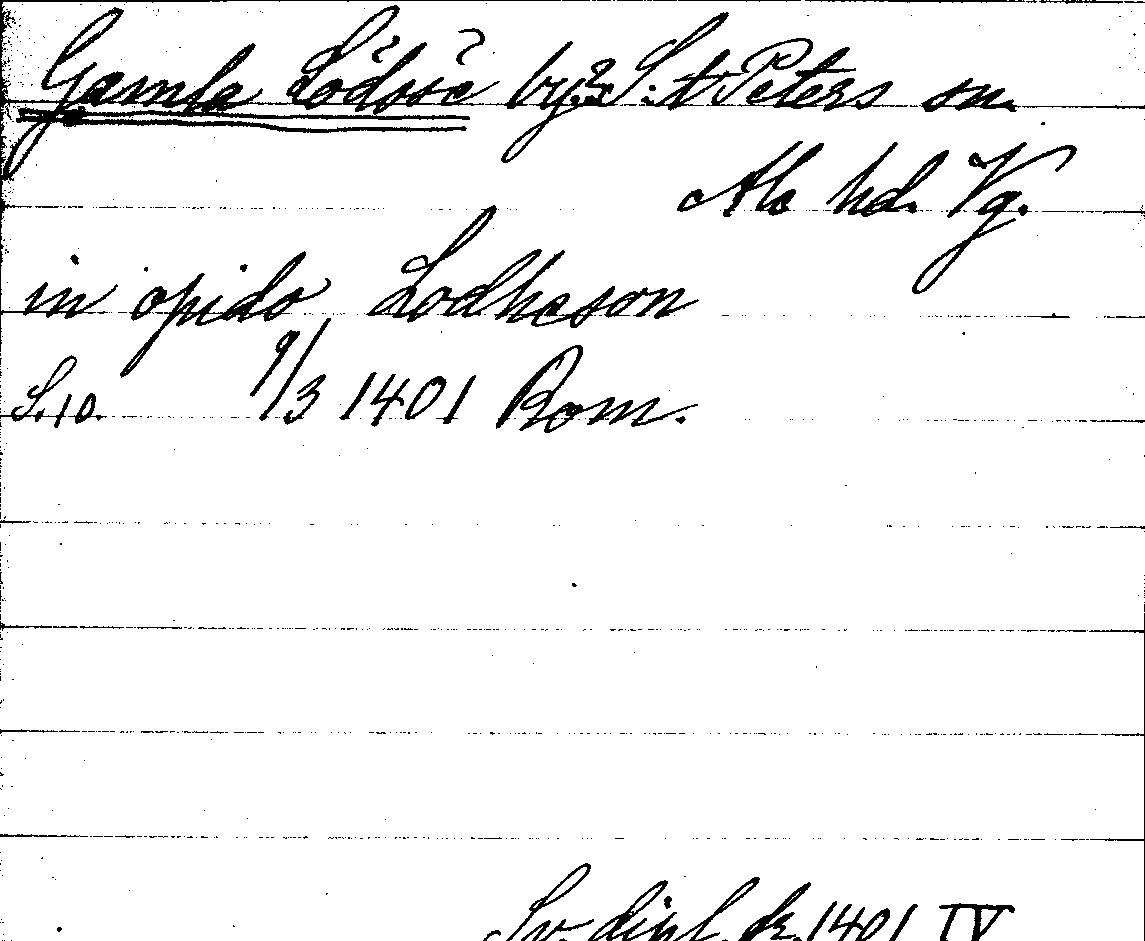 Gamla Lödöse by, S:t Peters sn.
Ale hd. Vg.
in opido Lodheson
S. 10. 9/3 1401 Rom.
Sv. dipl. fr. 1401 IV